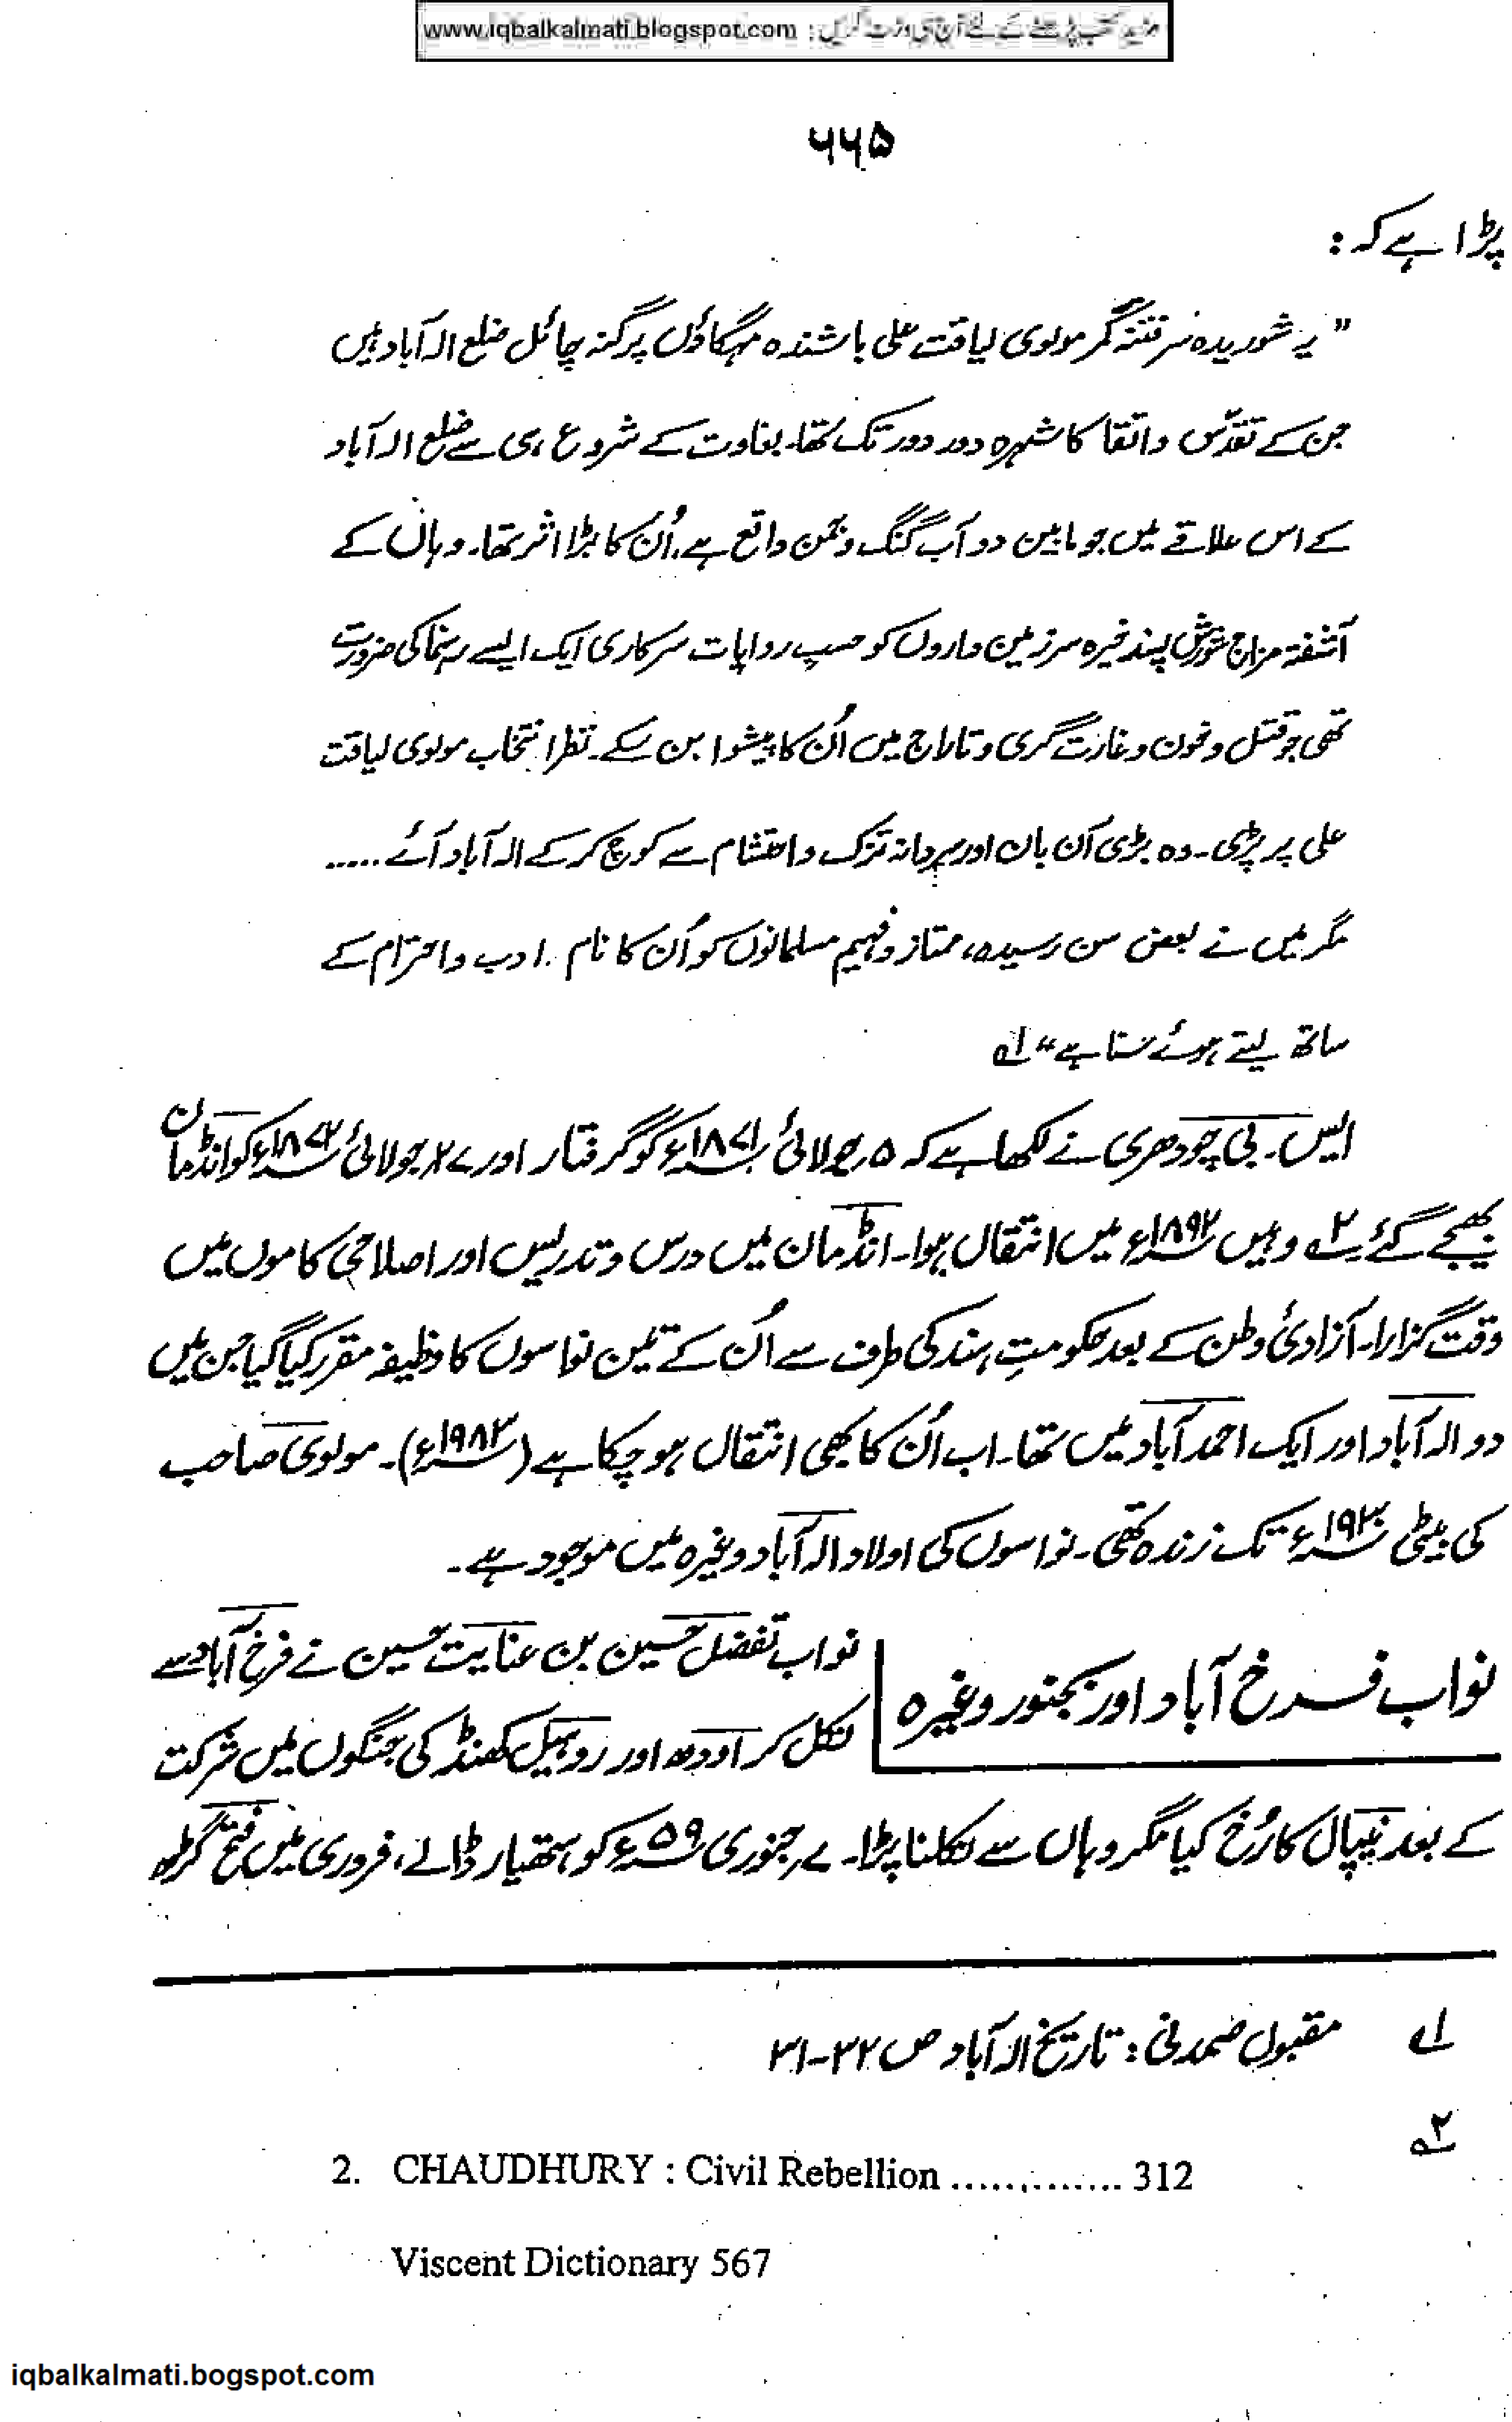 مزید کتب پڑھنے کے لئے آج ہی وزٹ کریں : www.iqbalkalmati.blogspot.com
۶۶۵
پڑا ہے کہ :
" یہ شوریدہ سر فتنہ گر مولوی لیاقت علی باشندہ مہگاؤں پرگنہ چائل ضلع الہ آباد ہیں
جن کے تقدّس و اتقا کا شہرہ دور دور تک تھا۔ بغاوت کے شروع ہی سے ضلع الہ آباد
کے اس علاقے میں جو مابین دو آب گنگ و جمن واقع ہے، اُن کا بڑا اثر تھا۔ وہاں کے
آشفتہ مزاج شورش پسند خیرہ سر زمین داروں کو حسب روایات سرکاری ایک ایسے رہنما کی ضرورت
تھی جو قتل و خون و غارت گری و تاراج میں اُن کا پیشوا بن سکے۔ نظر انتخاب مولوی لیاقت
علی پر پڑی۔ وہ بڑی آن بان اور مردانہ تزک و احتشام سے کوچ کر کے الہ آباد آئے .....
مگر میں نے بعض سن رسیدہ، ممتاز و فہیم مسلمانوں کو اُن کا نام ادب و احترام کے
ساتھ لیتے ہوئے سنا ہے" ۱؎
ایس۔ بی چودھری نے لکھا ہے کہ ۵ جولائی ۱۸۷۱ء کو گرفتار اور ۲۷ جولائی ۱۸۷۲ء کو انڈمان
بھیجے گئے ۲؎ وہیں ۱۸۹۲ء میں انتقال ہوا۔ انڈمان میں درس و تدریس اور اصلاحی کاموں میں
وقت گزارا۔ آزادیٔ وطن کے بعد حکومتِ ہند کی طرف سے اُن کے تین نواسوں کا وظیفہ مقرر کیا گیا جن میں
دو الہ آباد اور ایک احمد آباد میں تھا۔ اب اُن کا بھی انتقال ہو چکا ہے (۱۹۸۲ء)۔ مولوی صاحب
کی بیٹی ۱۹۲۰ء تک زندہ تھی۔ نواسوں کی اولاد الہ آباد وغیرہ میں موجود ہے۔
نواب فرخ آباد اور بجنور وغیرہ
نواب تفضل حسین بن عنایت حسین نے فرخ آباد سے
نکل کر اودھ اور روہیل کھنڈ کی جنگوں میں شرکت
کے بعد نیپال کا رُخ کیا مگر وہاں سے نکلنا پڑا۔ ۷ جنوری ۵۹ء کو ہتھیار ڈالے، فروری میں فتح گڑھ
۱؎ مقبول صمدنی : تاریخ الہ آباد ص ۳۲-۳۱
۲؎
2. CHAUDHURY : Civil Rebellion ............. 312
Viscent Dictionary 567
iqbalkalmati.bogspot.com